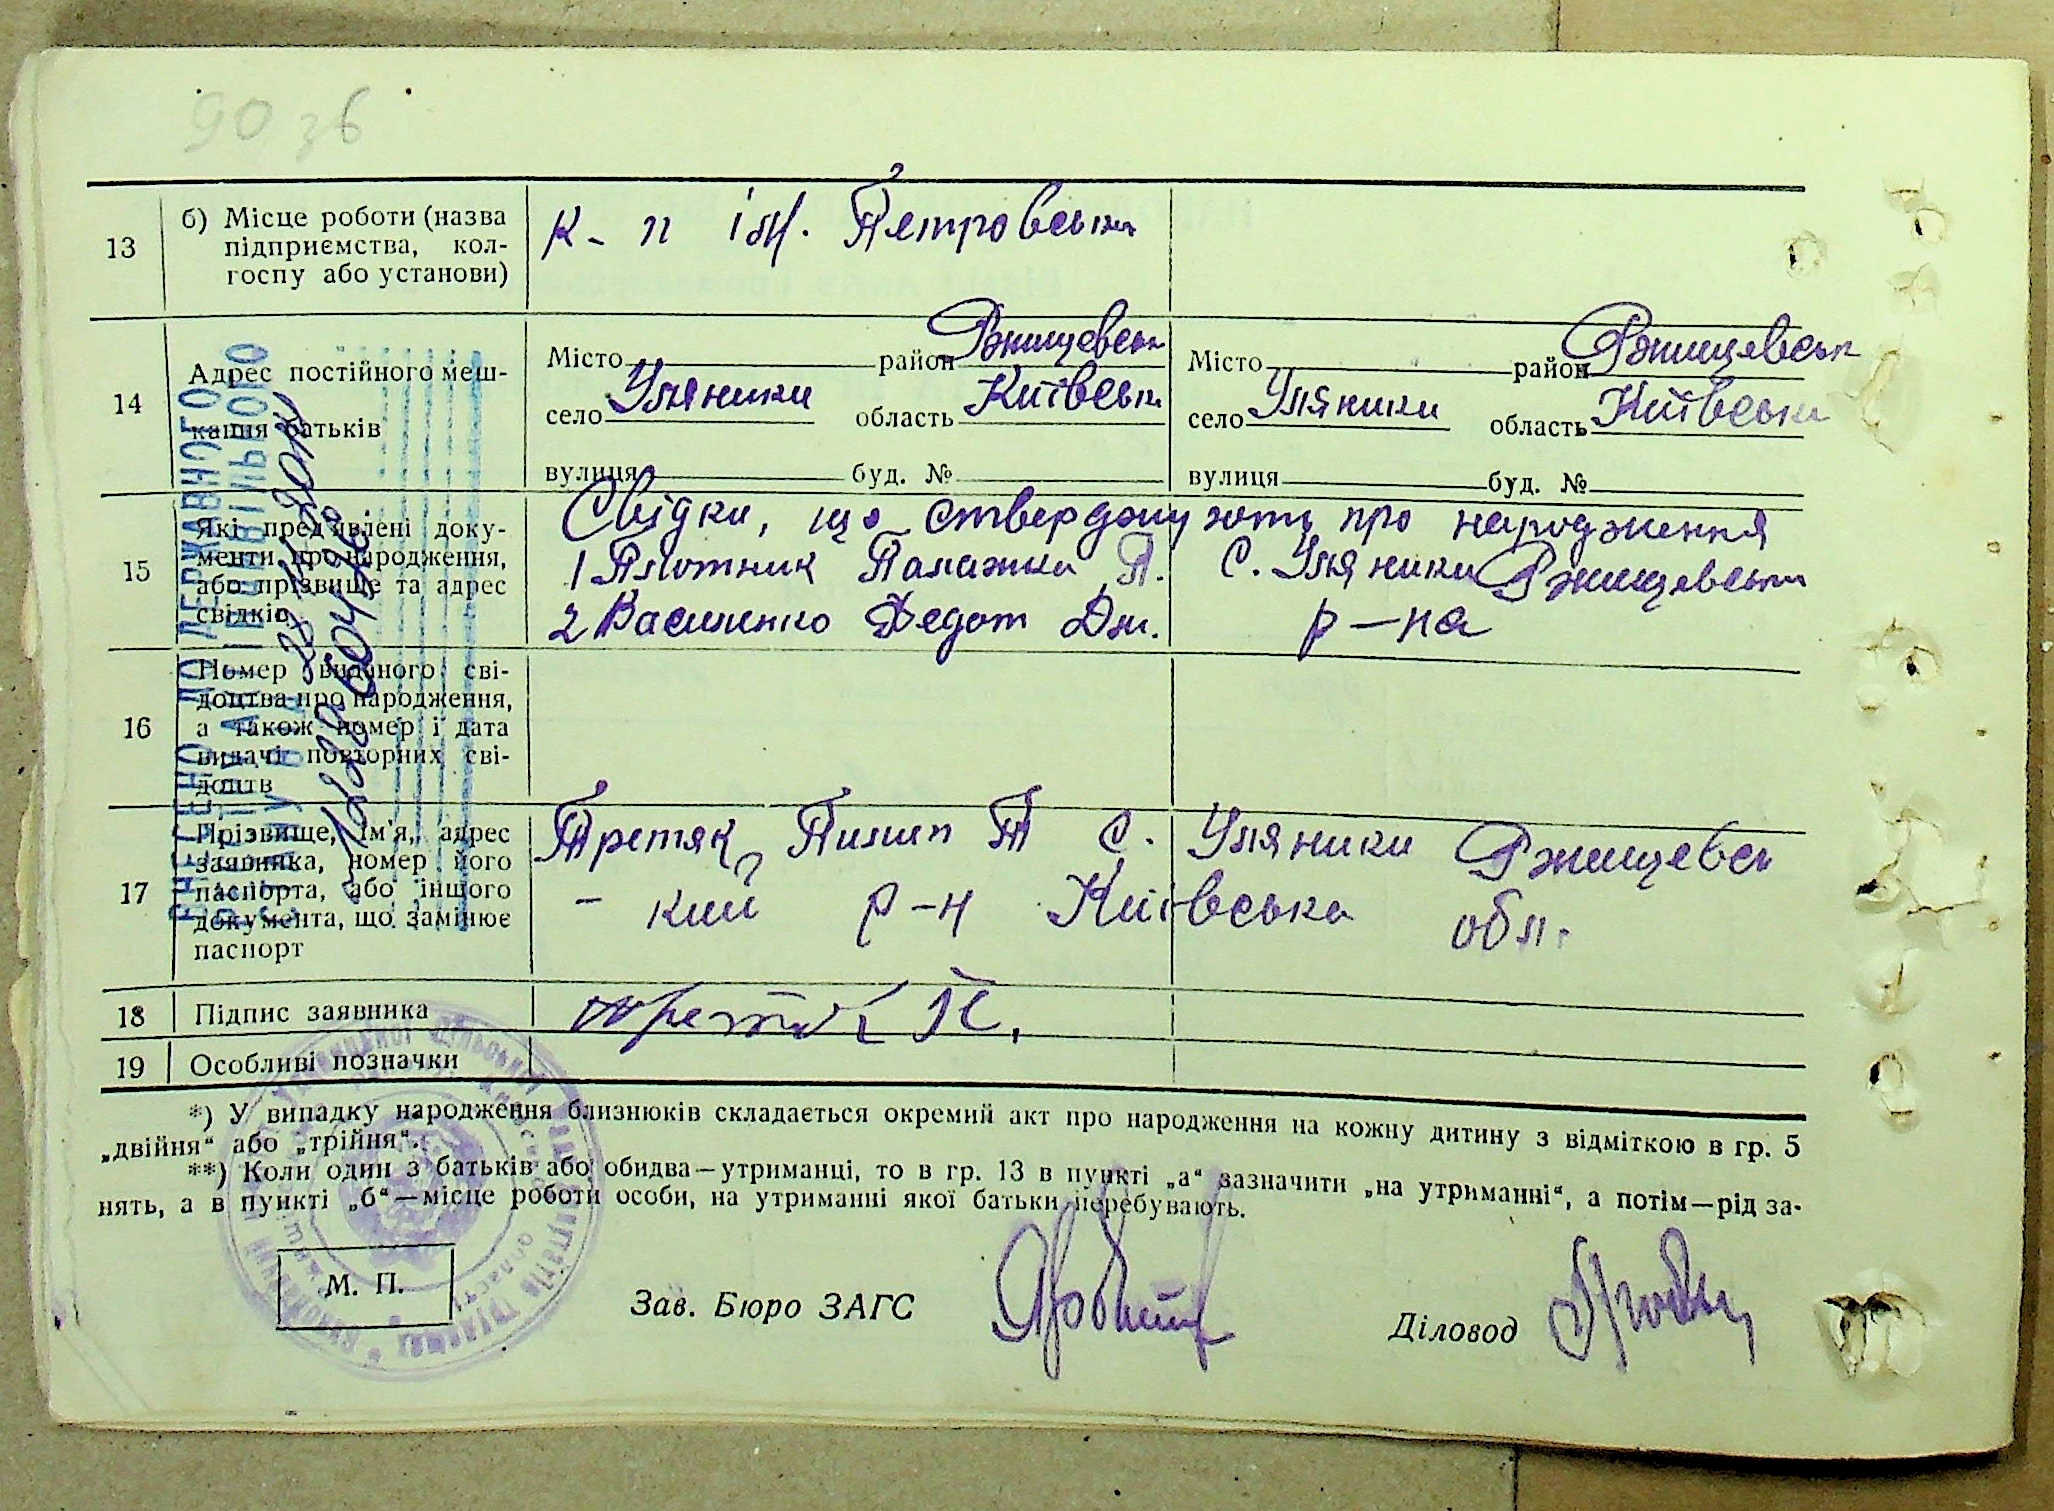 90 зв
13 б) Місце роботи (назва підприємства, колгоспу або установи) к-п ім. Петровськ
14 Адрес постійного мешкання батьків
Місто район Ржищевськ Місто район Ржищевськ
село Уляники область Київськ село Уляники область Київська
вулиця буд. № вулиця буд. №
15 Які пред'явлені документи про народження, або прізвище та адрес свідків
Свідки, що стверджують про народження
1 Плотник Палажка П. С. Уляники Ржищевськ
2 Василенко Федот Дм. р-на
16 Номер виданого свідоцтва про народження, а також номер і дата видачі повторних свідоцтв
17 Прізвище, ім'я, адрес заявника, номер його паспорта, або іншого документа, що замінює паспорт
Третяк Пилип П С. Уляники Ржищевсь
- кий р-н Київська обл.
18 Підпис заявника Третяк П.
19 Особливі позначки
*) У випадку народження близнюків складається окремий акт про народження на кожну дитину з відміткою в гр. 5
„двійня“ або „трійня“.
**) Коли один з батьків або обидва—утриманці, то в гр. 13 в пункті „а“ зазначити „на утриманні“, а потім—рід за-
нять, а в пункті „б“—місце роботи особи, на утриманні якої батьки перебувають.
М. П.
Зав. Бюро ЗАГС
Діловод
ВНЕСЕНО ДО ДЕРЖАВНОГО